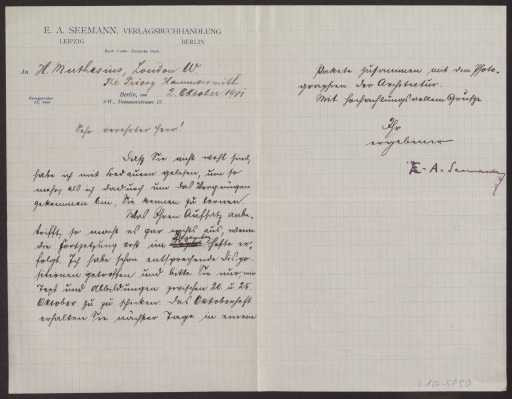 E. A. SEEMANN, VERLAGSBUCHHANDLUNG
LEIPZIG BERLIN
An H. Muthesius, London W
The Priory Hammersmith
Berlin, den 2. Oktober 1901
Sehr verehrter Herr!
Daß Sie nicht wohl sind,
habe ich mit Bedauern gelesen, um so
mehr, als ich dadurch um das Vergnügen
gekommen bin, Sie kennen zu lernen.
Was Ihren Aufsatz anbe-
trifft, so macht es gar nichts aus, wenn
die Fortsetzung erst im Hefte er-
folgt. Ich habe schon entsprechende Dispo-
sitionen getroffen und bitte Sie nur, mir
Text und Abbildungen zwischen 20. u 25.
Oktober zu schicken. Das Oktoberheft
erhalten Sie nächster Tage in einem
Pakete zusammen mit den Photo-
graphien der Architektur.
Mit hochachtungsvollem Gruße
Ihr
ergebener
E. A. Seemann